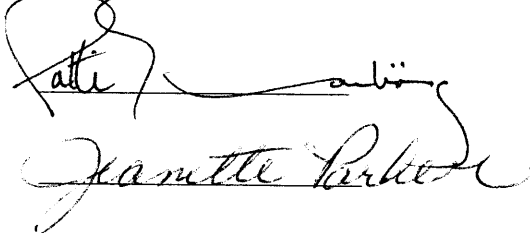 Patti
Jeanette Parker